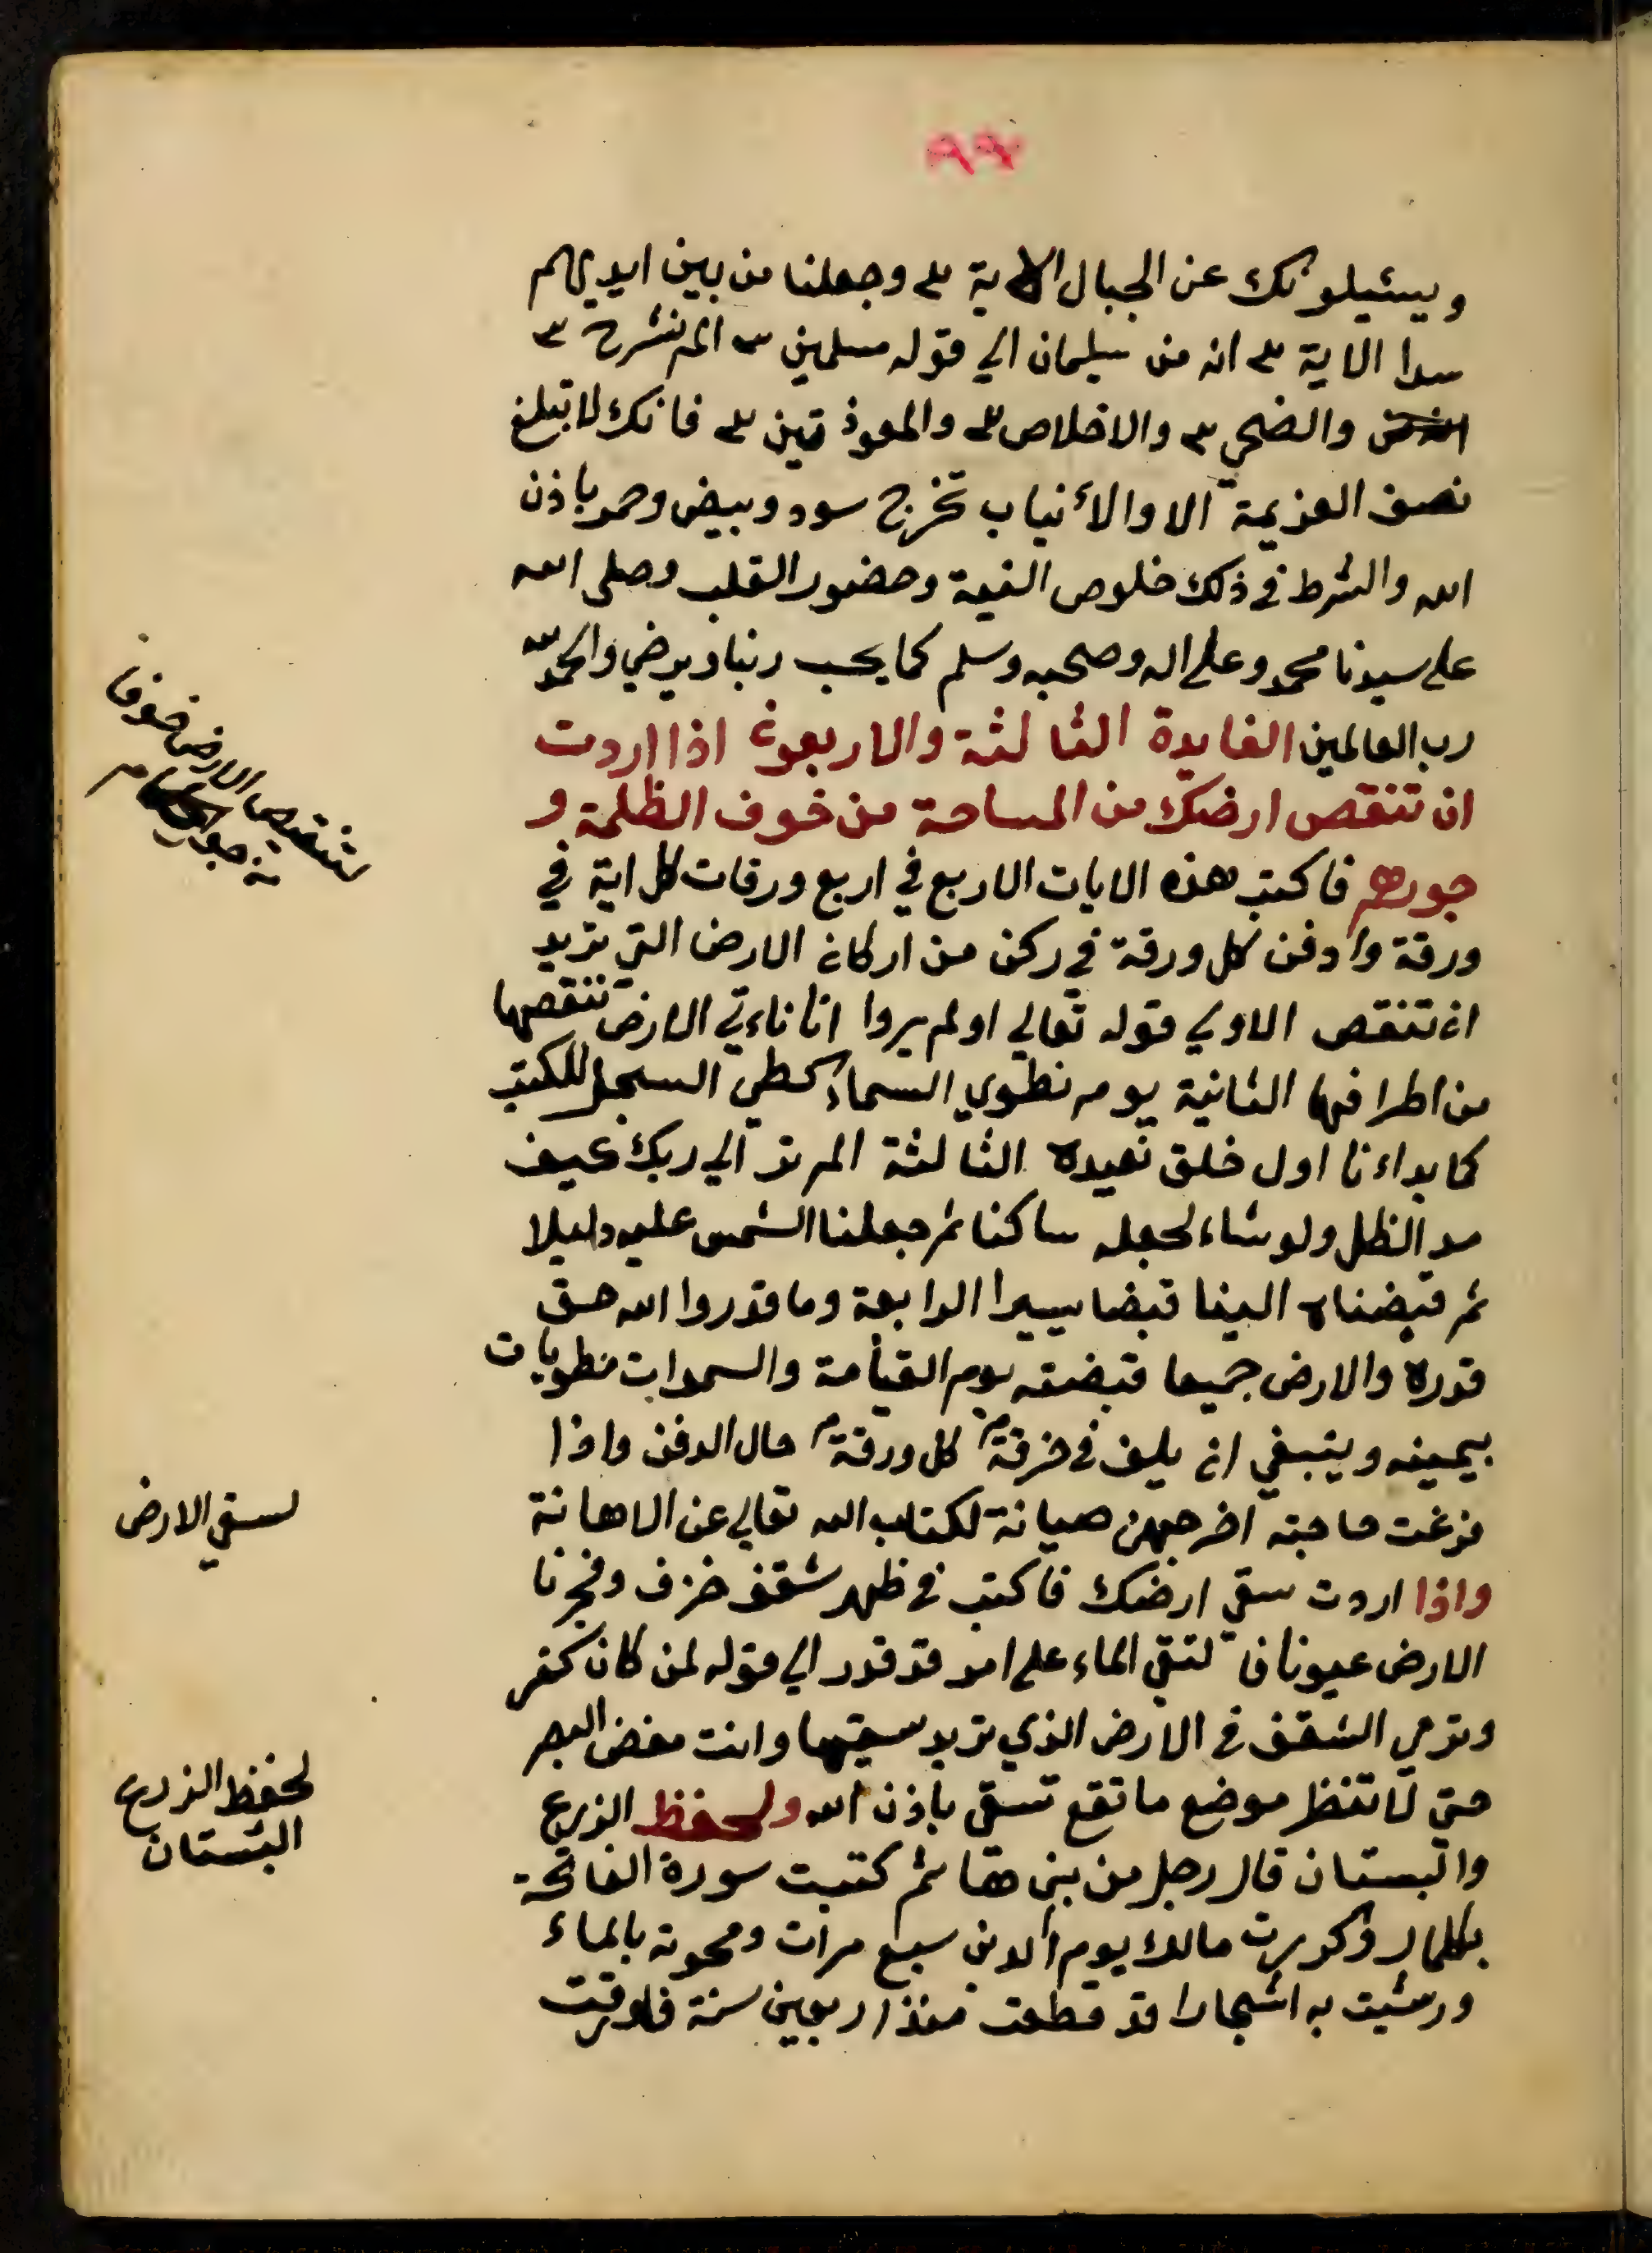 ٩٧
ويسئيلونك عن الجبال الاية ٣ وجعلنا من بين ايديهم
سدا الاية ٣ انه من سليمان الي قوله مسلمين ٣ الم نشرح ٣
والضحي ٣ والاخلاص ٣ والمعوذتين ٣ فانك لا تبلغ
نصف العزيمة الا والأنياب تخرج سود وبيض وحمر باذن
الله والشرط في ذلك خلوص النية وحضور القلب وصلى الله
على سيدنا محمد وعلى اله وصحبه وسلم كما يحب ربنا ويرضي والحمد لله
رب العالمين الفايدة الثالثة والاربعون اذا اردت
ان تنقص ارضك من المساحة من خوف الظلمة و
جورهم فاكتب هذه الايات الاربع في اربع ورقات كل اية في
ورقة وادفن كل ورقة في ركن من اركان الارض التي تريد
ان تنقص الاولي قوله تعالي اولم يروا انا ناءتي الارض ننقصها
من اطرافها الثانية يوم نطوي السماء كطي السجل للكتب
كما بداءنا اول خلق نعيده الثالثة الم تر الي ربك كيف
مد الظل ولو شاء لجعله ساكنا ثم جعلنا الشمس عليه دليلا
ثم قبضناه الينا قبضا يسيرا الرابعة وما قدروا الله حق
قدره والارض جميعا قبضته يوم القيامة والسموات مطويات
بيمينه وينبغي ان يلف في خرقة كل ورقة حال الدفن واذا
فرغت حاجته اخرجهن صيانة لكتاب الله تعالي عن الاهانة
واذا اردت سقي ارضك فاكتب في ظهر شقف خزف وفجرنا
الارض عيونا فالتقي الماء على امر قد قدر الي قوله لمن كان كفر
وترمي الشقف في الارض الذي تريد سقيها وانت مغض البصر
حتي لا تنظر موضع ما تقع تسقي باذن الله ولحفظ الزرع
والبستان قال رجل من بني هاشم كتبت سورة الفاتحة
بكمالها وكررت مالك يوم الدين سبع مرات ومحوته بالماء
ورشيت به اشجارا قد قطعت منذ اربعين سنة فاورقت
لتنقص الارض خوفا
من جور
لسقي الارض
لحفظ الزرع
البستان